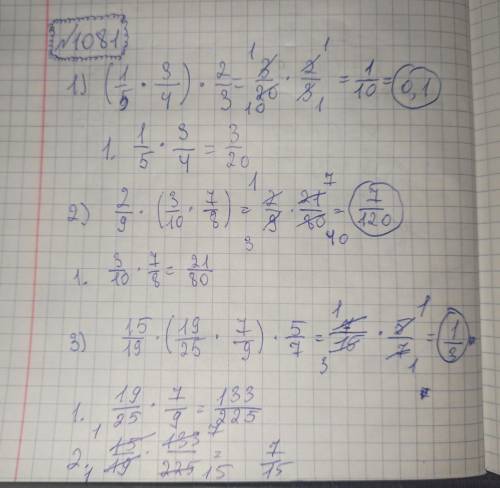 №1081
1) (1/5 · 3/4) · 2/3 = 3/20 · 2/3 = 1/10 = 0,1
1. 1/5 · 3/4 = 3/20
2) 2/9 · (3/10 · 7/8) = 2/9 · 21/80 = 7/120
1. 3/10 · 7/8 = 21/80
3) 15/19 · (19/25 · 7/9) · 5/7 = 7/15 · 5/7 = 1/3
1. 19/25 · 7/9 = 133/225
2. 15/19 · 133/225 = 7/15